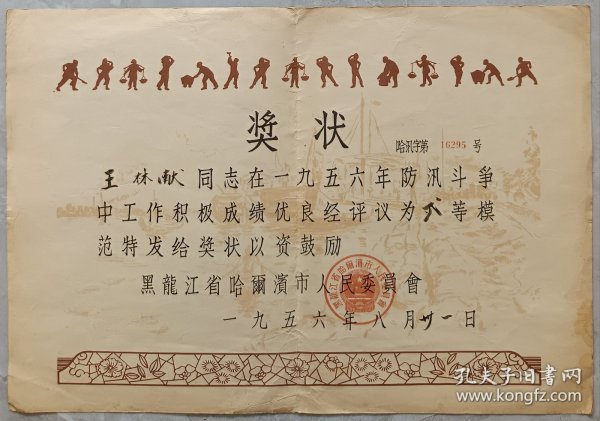 奖状
哈汛字第 16295 号
王休献同志在一九五六年防汛斗争
中工作积极成绩优良经评议为弍等模
范特发给奖状以资鼓励
黑龍江省哈爾濱市人民委員會
一九五六年八月卅一日
黑龍江省哈爾濱市人民委員會
孔夫子旧书网
www.kongfz.com